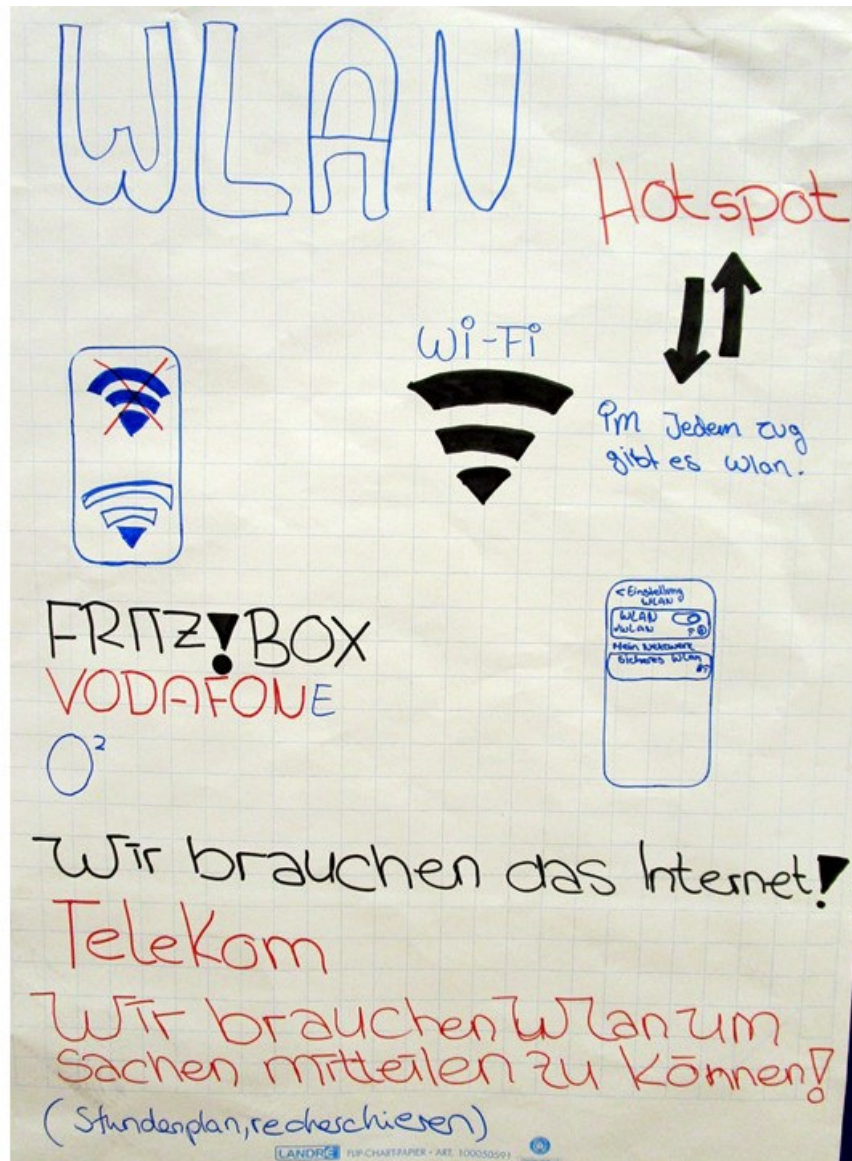 WLAN
Hotspot
Wi-Fi
im Jedem zug
gibt es wlan.
FRITZ!BOX
VODAFONE
O²
< Einstellung
WLAN
WLAN
WLAN
Mein Netzwerk
Sicheres Wlan
Wir brauchen das Internet!
Telekom
Wir brauchen Wlan um
sachen mitteilen zu können!
(Stundenplan, recherschieren)
LANDRÉ FLIP-CHART-PAPIER • ART. 100050591